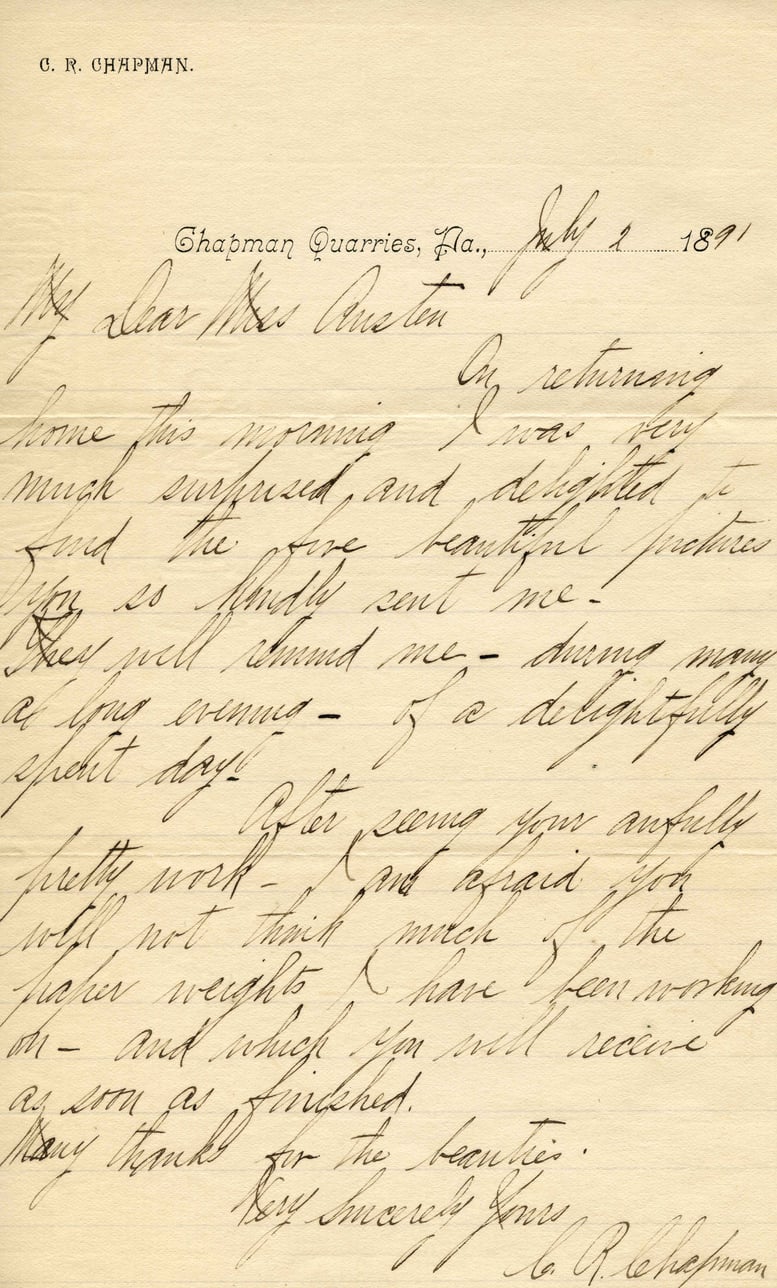 C. R. CHAPMAN.
Chapman Quarries, Pa., July 2 1891
My Dear Miss Austen
On returning
home this morning I was very
much surprised and delighted to
find the five beautiful pictures
you so kindly sent me -
They will remind me - during many
a long evening - of a delightfully
spent day -
After seeing your awfully
pretty work - I am afraid you
will not think much of the
paper weights I have been working
on - and which you will receive
as soon as finished.
Many thanks for the beauties.
Very Sincerely Yours
C. R. Chapman